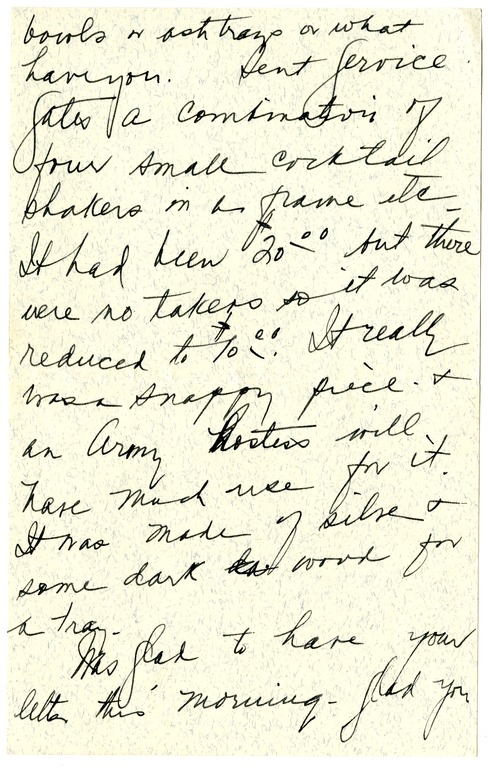 bowls or ashtrays or what
have you. Sent Service
Gates a combination of
four small cocktail
shakers in a frame etc-
It had been $20.00 but there
were no takers so it was
reduced to $10.00. It really
was a snappy piece. +
an Army hostess will
have much use for it.
It was made of silver +
some dark wood for
a tray.
Was glad to have your
letter this morning - glad you